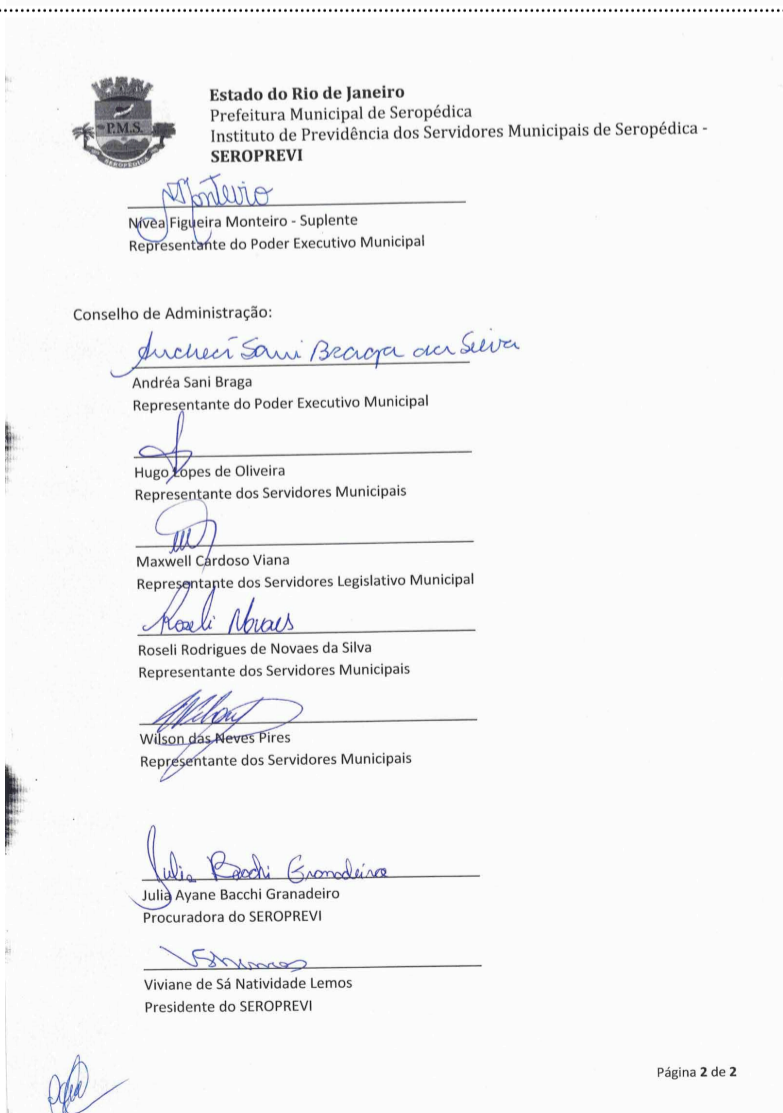 Estado do Rio de Janeiro
Prefeitura Municipal de Seropédica
Instituto de Previdência dos Servidores Municipais de Seropédica -
SEROPREVI
P.M.S.
SEROPÉDICA
Monteiro
Nívea Figueira Monteiro - Suplente
Representante do Poder Executivo Municipal
Conselho de Administração:
Andréa Sani Braga da Silva
Andréa Sani Braga
Representante do Poder Executivo Municipal
Hugo Lopes de Oliveira
Representante dos Servidores Municipais
Maxwell Cardoso Viana
Representante dos Servidores Legislativo Municipal
Roseli Novaes
Roseli Rodrigues de Novaes da Silva
Representante dos Servidores Municipais
Wilson das Neves Pires
Representante dos Servidores Municipais
Julia Bacchi Granadeiro
Julia Ayane Bacchi Granadeiro
Procuradora do SEROPREVI
Viviane de Sá Natividade Lemos
Presidente do SEROPREVI
Página 2 de 2